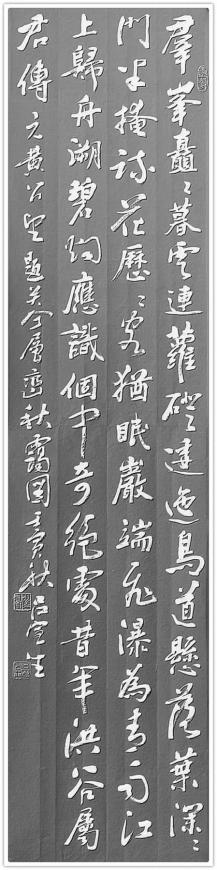 羣峯矗〻暮雲連蘿磴逶迤鳥道懸落葉深〻
門半掩疏花歷〻客猶眠巖端飛瀑為青雨江
上歸舟湖碧烟應識個中奇絕處昔年洪谷屬
君傳 元黃公望題关仝層巒秋靄圖壬寅秋